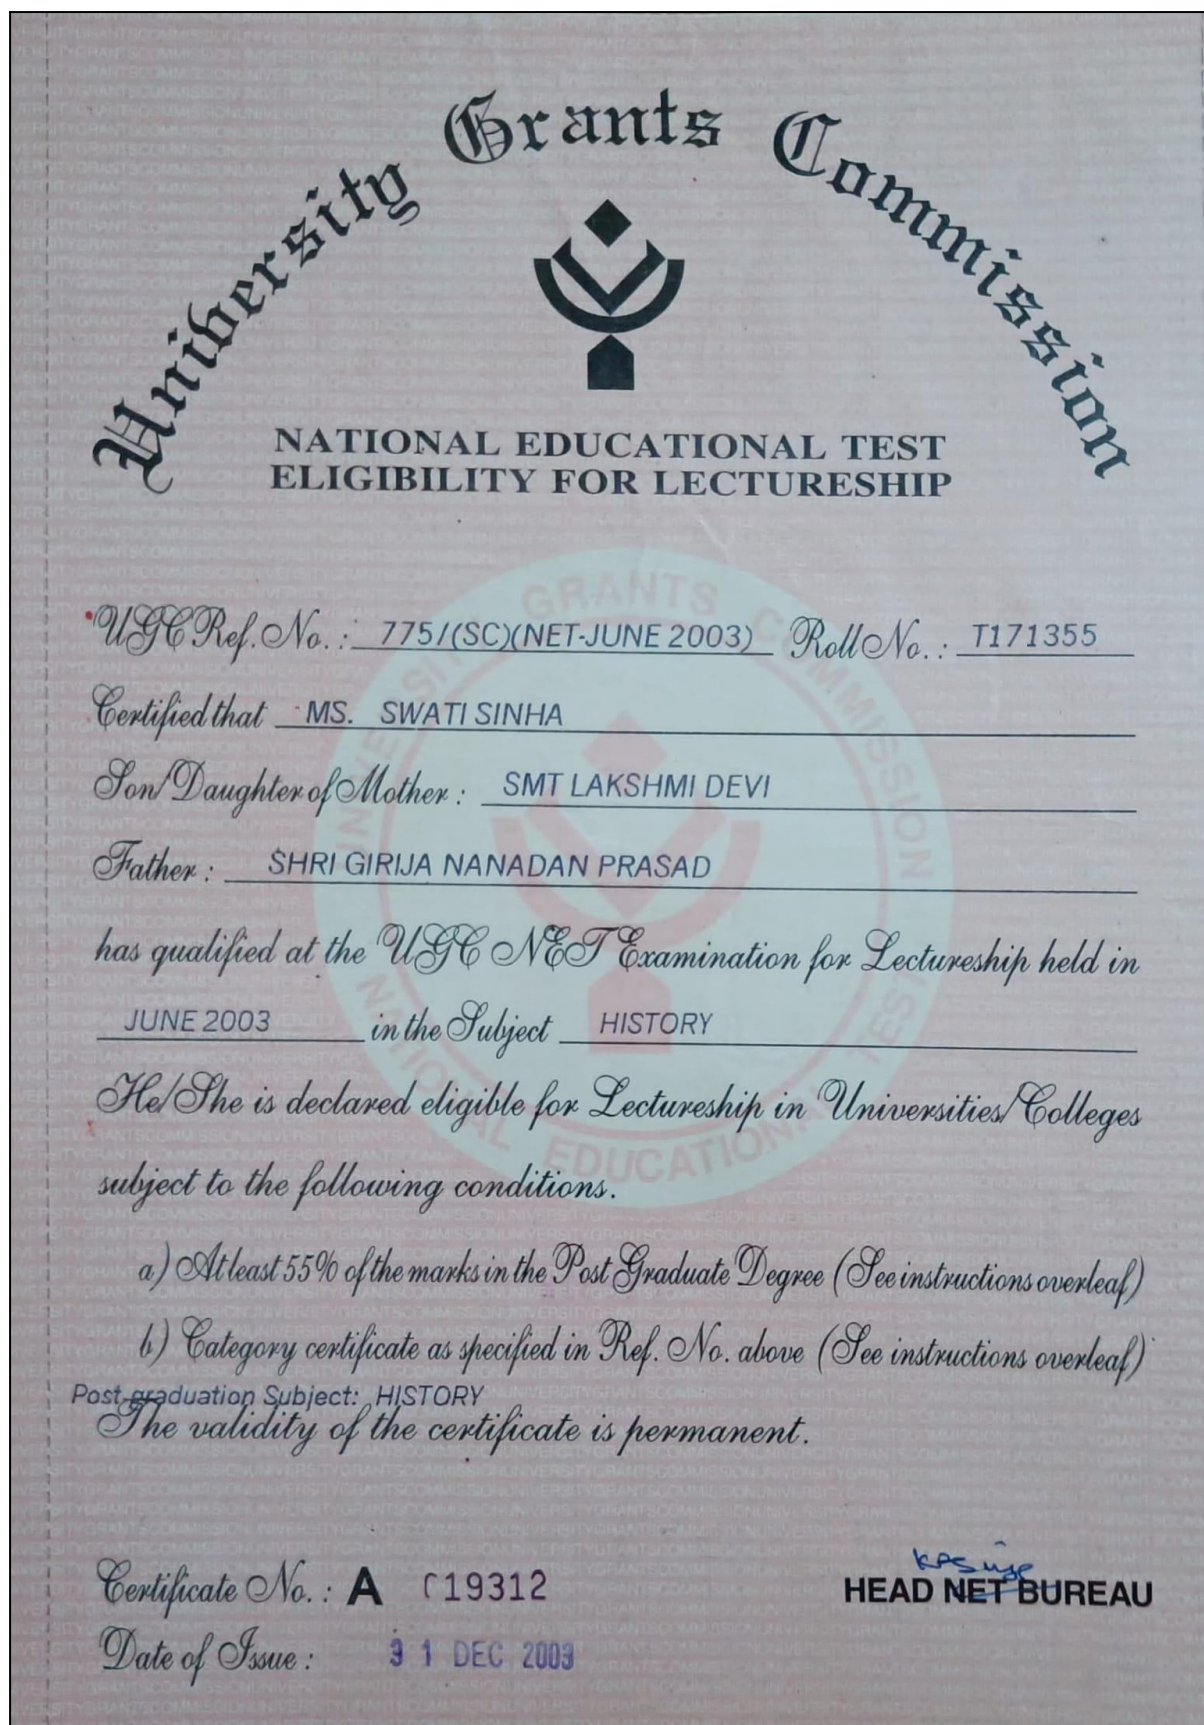 University Grants Commission
NATIONAL EDUCATIONAL TEST
ELIGIBILITY FOR LECTURESHIP
UGC Ref. No. : 775/(SC)(NET-JUNE 2003) Roll No. : T171355
Certified that MS. SWATI SINHA
Son/Daughter of Mother : SMT LAKSHMI DEVI
Father : SHRI GIRIJA NANADAN PRASAD
has qualified at the UGC NET Examination for Lectureship held in
JUNE 2003 in the Subject HISTORY
He/She is declared eligible for Lectureship in Universities/Colleges
subject to the following conditions.
a) At least 55% of the marks in the Post Graduate Degree (See instructions overleaf)
b) Category certificate as specified in Ref. No. above (See instructions overleaf)
Post-graduation Subject: HISTORY
The validity of the certificate is permanent.
Certificate No. : A 19312
HEAD NET BUREAU
Date of Issue : 31 DEC 2003
UNIVERSITY GRANTS COMMISSION
NATIONAL EDUCATIONAL TEST